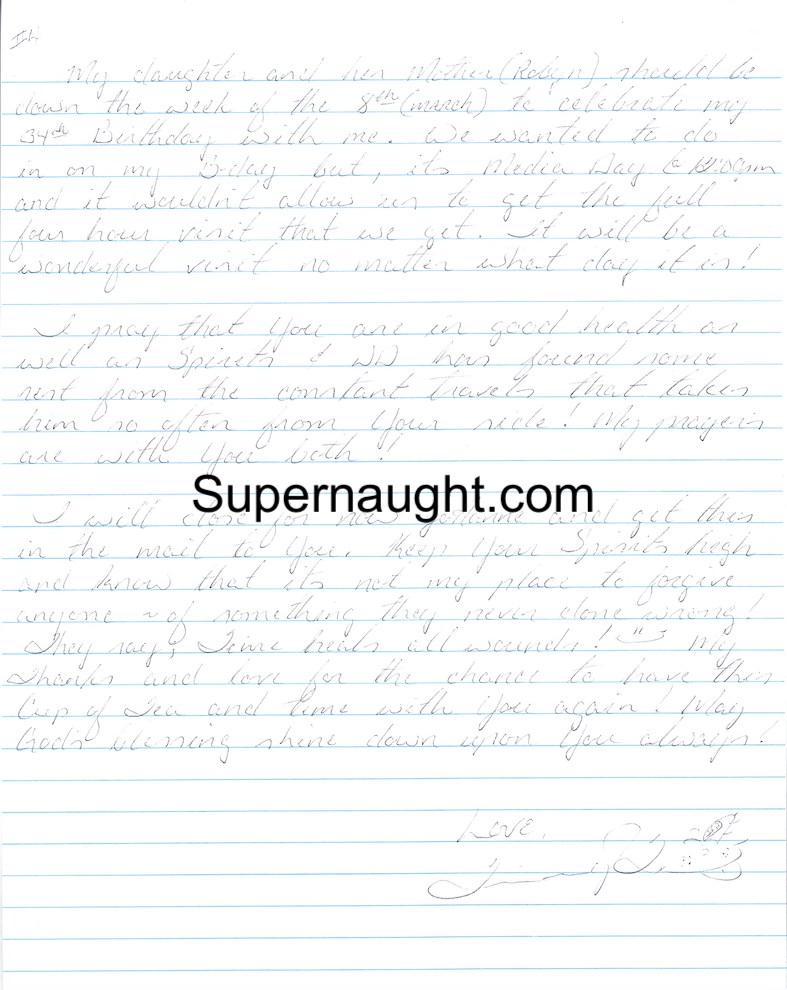 My daughter and her Mother (Robyn) should be
down the week of the 8th (march) to celebrate my
34th Birthday with me. We wanted to do
in on my B-day but, its Media Day @
and it wouldn't allow us to get the full
four hour visit that we get. It will be a
wonderful visit no matter what day it is!
I pray that You are in good health as
well as Spirits & has found some
rest from the constant travels that takes
him so often from Your side! My prayers
are with You both!
Supernaught.com
I will close for now and get this
in the mail to You. Keep Your Spirits high
and know that its not my place to forgive
anyone ~ of something they never done wrong!
They say, Time heals all wounds! My
Thanks and love for the chance to have this
Cup of Tea and time with You again! May
God's blessing shine down upon You always!
Love,